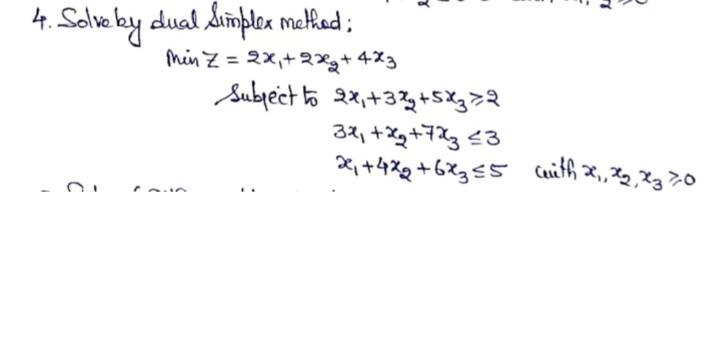 4. Solve by dual Simplex method;
Min Z = 2x₁ + 2x₂ + 4x₃
Subject to 2x₁ + 3x₂ + 5x₃ ≥ 2
3x₁ + x₂ + 7x₃ ≤ 3
x₁ + 4x₂ + 6x₃ ≤ 5 with x₁, x₂, x₃ ≥ 0